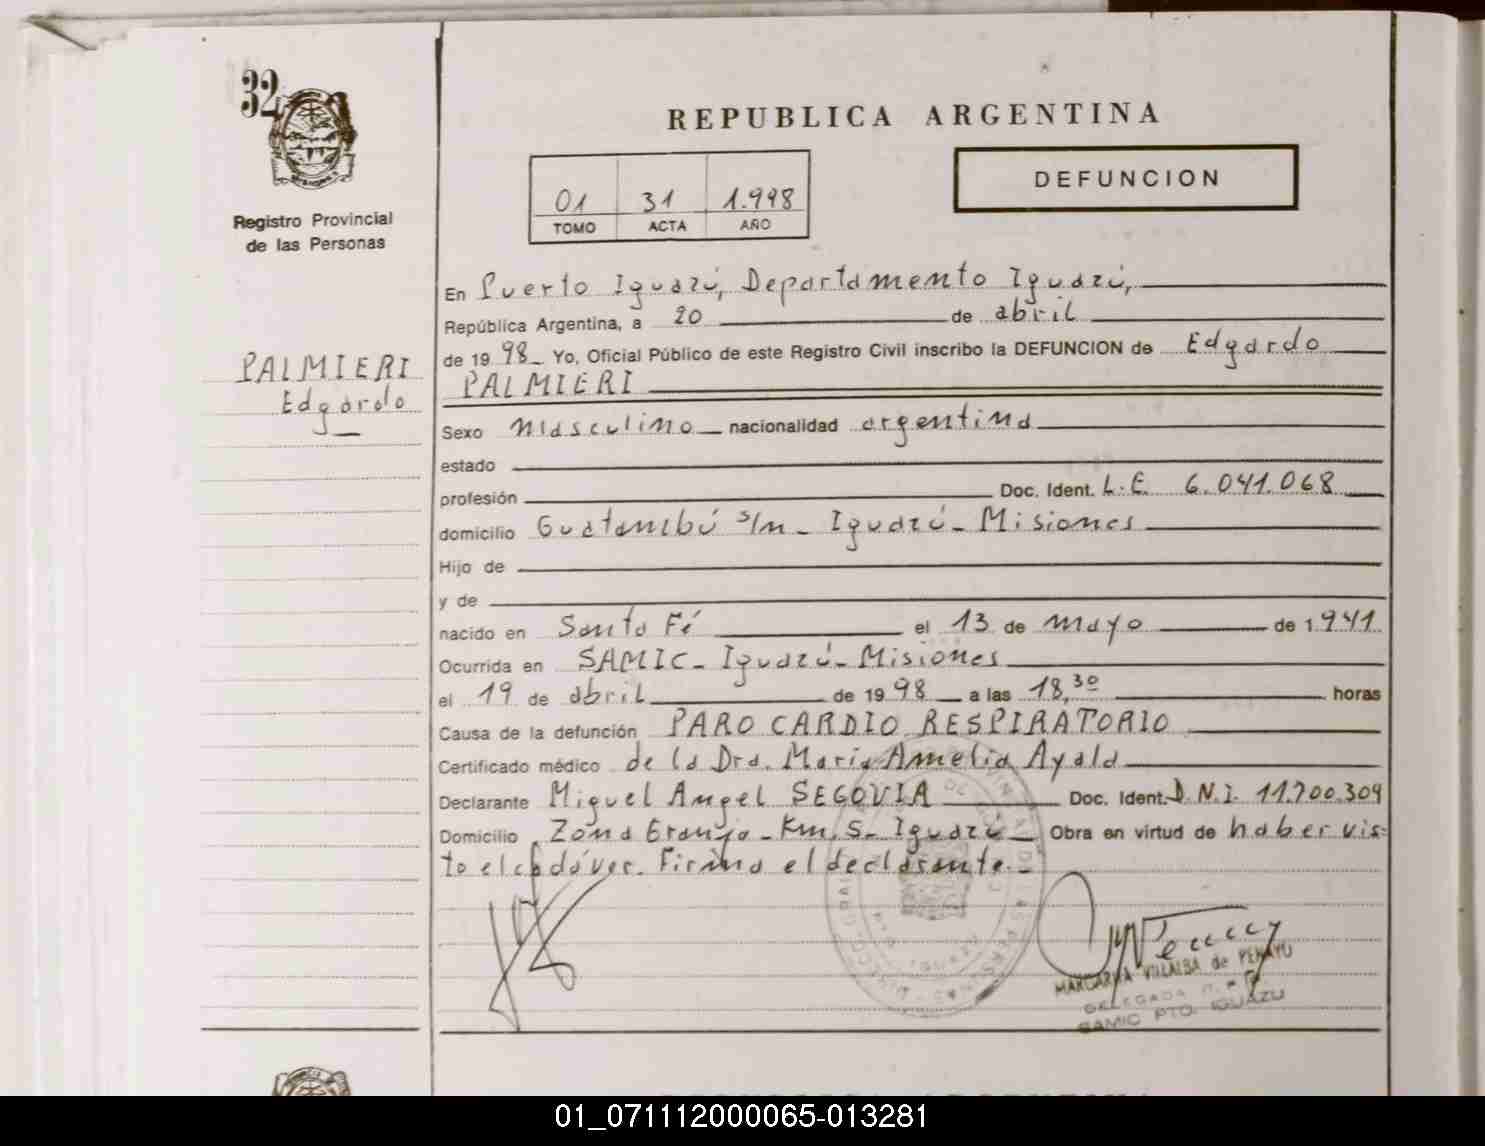 32
Registro Provincial
de las Personas
PALMIERI
Edgardo
REPUBLICA ARGENTINA
01 31 1.998
TOMO ACTA AÑO
DEFUNCION
En Puerto Iguazú, Departamento Iguazú,
República Argentina, a 20 de abril
de 19 98 Yo, Oficial Público de este Registro Civil inscribo la DEFUNCION de Edgardo
PALMIERI
Sexo masculino nacionalidad argentina
estado
profesión Doc. Ident. L.E. 6.041.068
domicilio Guatambú s/n - Iguazú - Misiones
Hijo de
y de
nacido en Santa Fé el 13 de mayo de 1.941
Ocurrida en SAMIC - Iguazú - Misiones
el 19 de abril de 19 98 a las 18,30 horas
Causa de la defunción PARO CARDIO RESPIRATORIO
Certificado médico de la Dra. María Amelia Ayala
Declarante Miguel Angel SEGOVIA Doc. Ident. D.N.I. 11.700.309
Domicilio Zona Granja - Km. 5 - Iguazú Obra en virtud de haber vis-
to el cadáver. Firma el declarante.
MARGARITA VILLALBA de PENAYO
DELEGADA
SAMIC PTO. IGUAZU
01_071112000065-013281